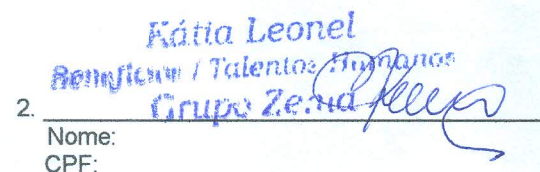 Kátia Leonel
Benefícios / Talentos Humanos
Grupo Zema
2.
Nome:
CPF: